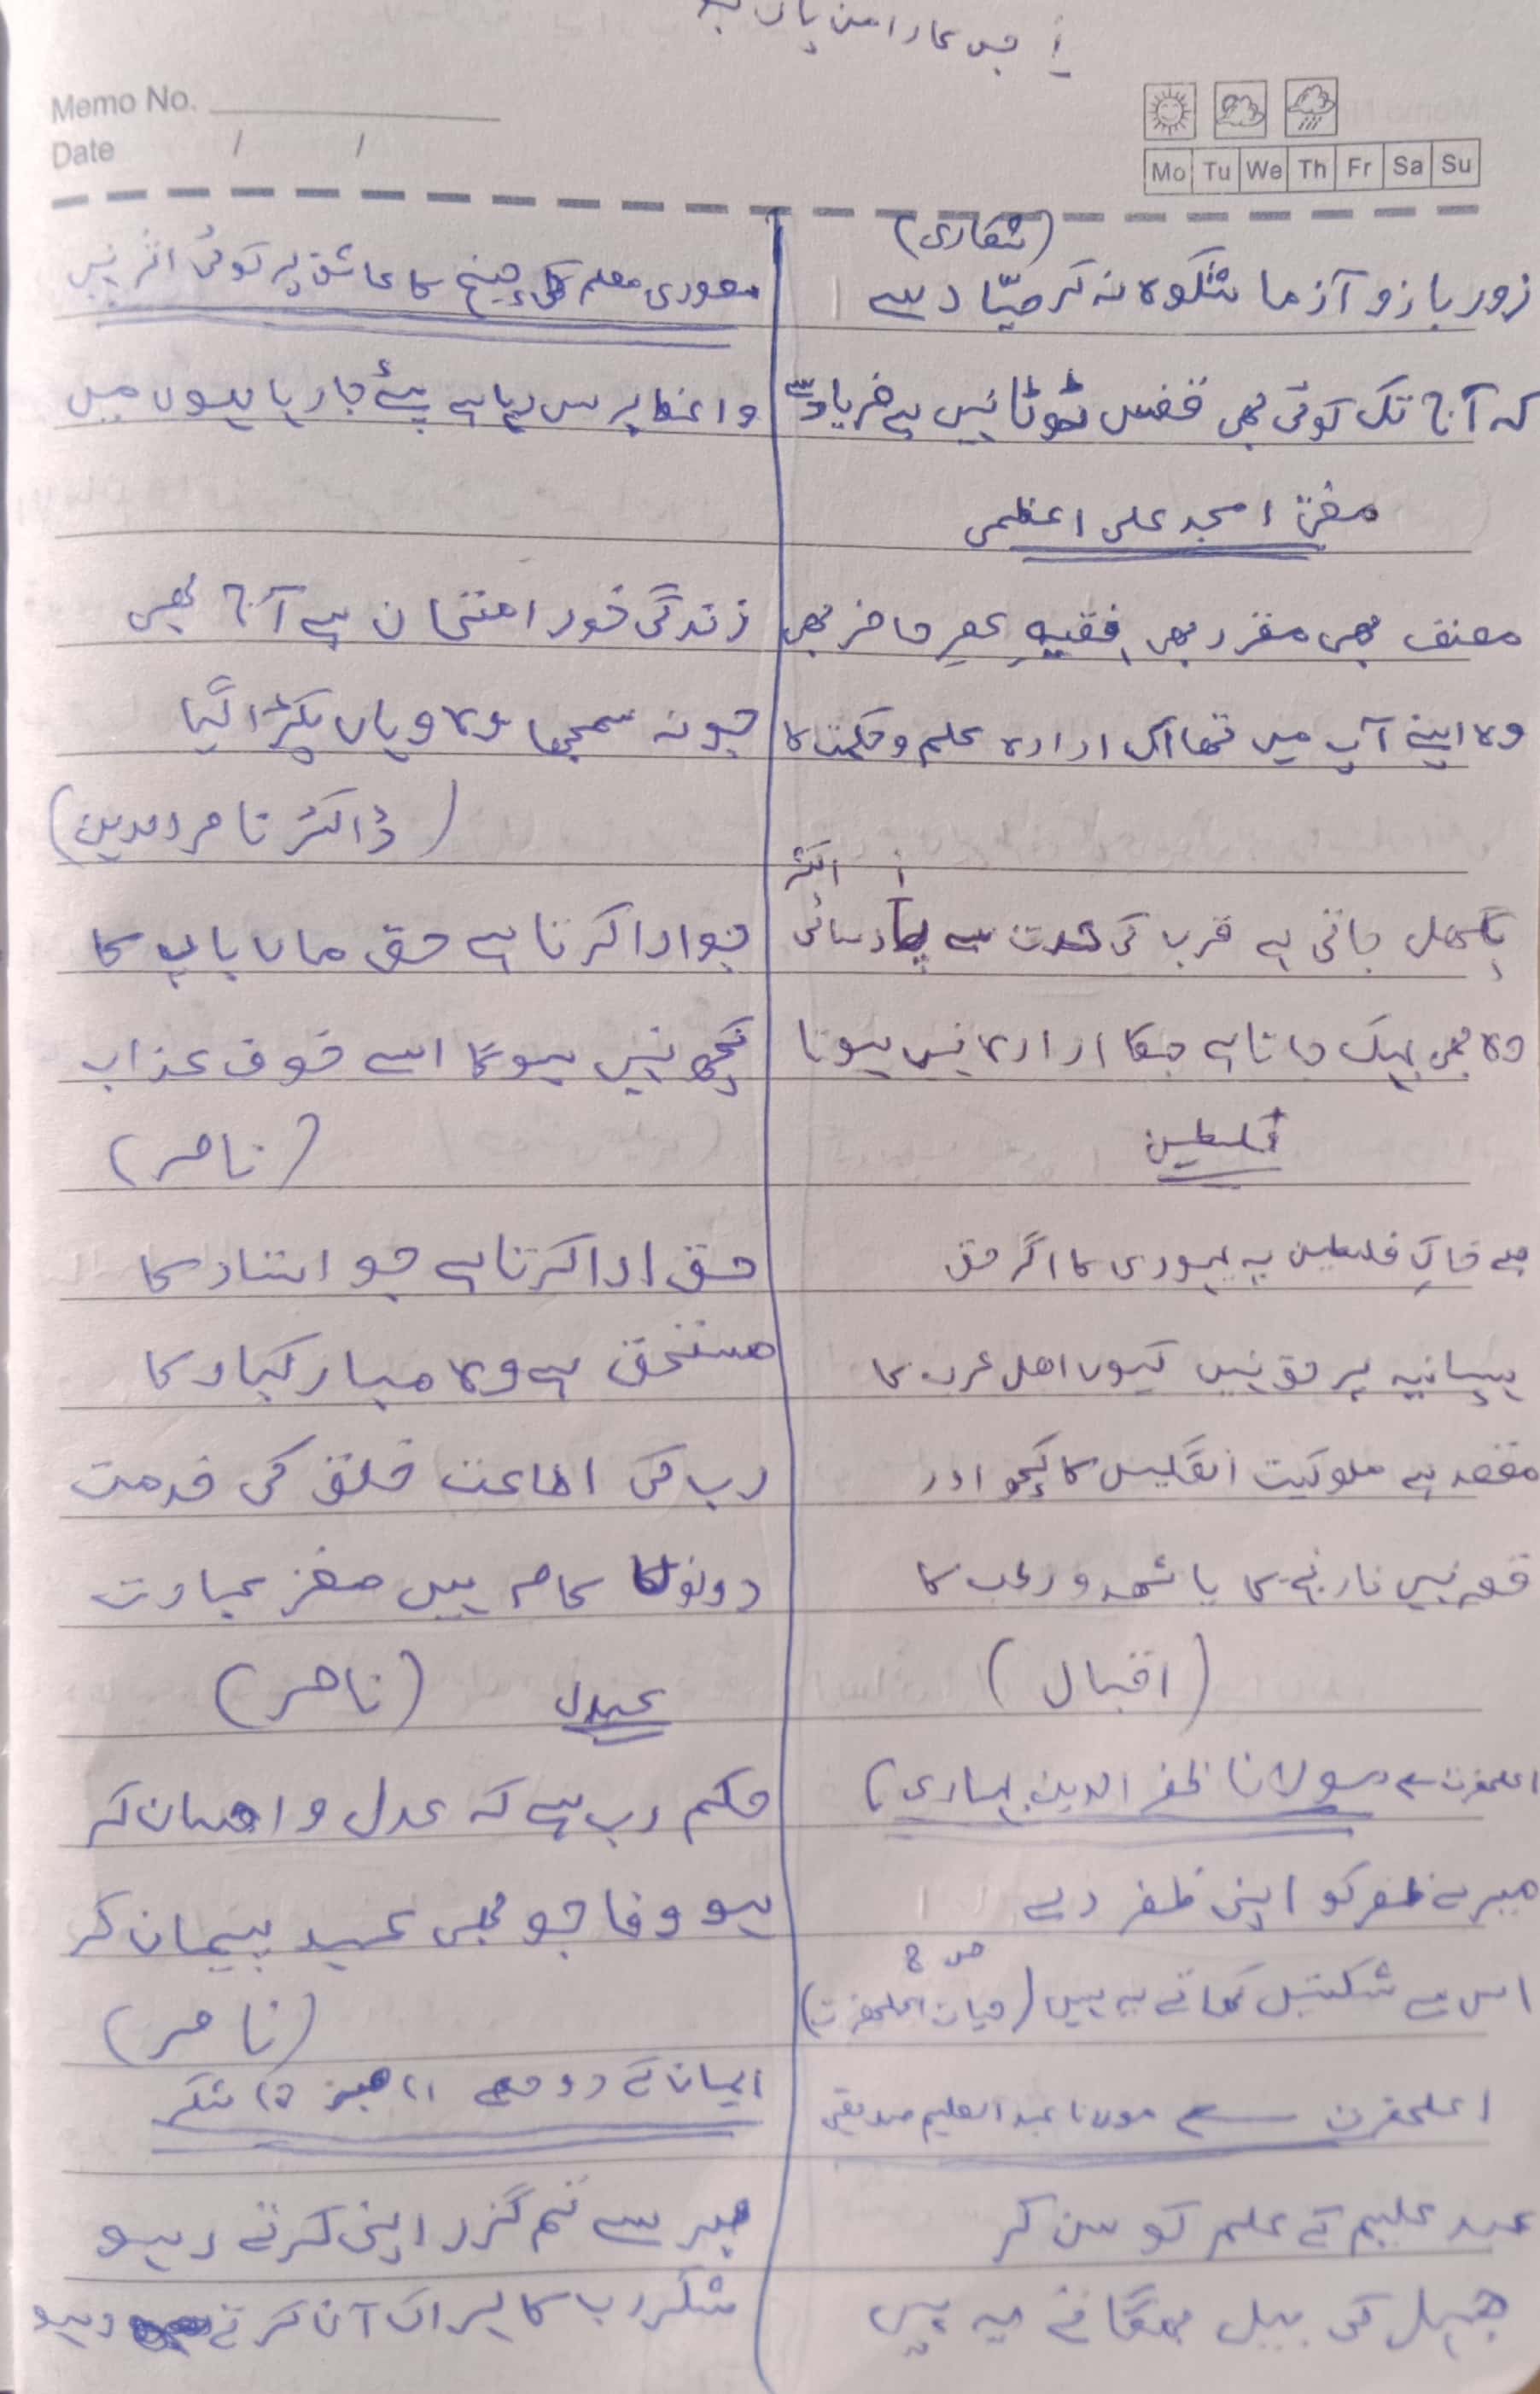 Memo No.
Date / /
Mo Tu We Th Fr Sa Su
(شکاری)
زور بازو آزما شکوہ نہ کر صیّاد سے
کہ آج تک کوئی بھی قفس ٹوٹا نہیں ہے فریاد سے
مفتی امجد علی اعظمی
مصنف بھی مقرر بھی فقیہِ عصرِ حاضر بھی
وہ اپنے آپ میں تھا اک ادارہ علم و حکمت کا
اکثر
پگھل جاتی ہے قرب کی حدت سے پارسائی
وہ بھی بہک جاتا ہے جسکا ارادہ نہیں ہوتا
فلسطین
ہے خاکِ فلسطین پہ یہودی کا اگر حق
ہسپانیہ پر حق نہیں کیوں اھل عرب کا
مقصد ہے ملوکیت انگلیس کا کچھ اور
قصہ نہیں نارنج کا یا شہد و رطب کا
(اقبال)
اعلحضرت سے مولانا ظفر الدین بہاری)
میرے ظفر کو اپنی ظفر دے
اس سے شکستیں کھاتے یہ ہیں (حیات اعلحضرت)
اعلحضرت سے مولانا عبد العلیم صدیقی
عبد علیم کے علم کو سن کر
جہل کی بہل بھگاتے یہ ہیں
معلم کی چیخ کا عاشق پر کوئی اثر نہیں
زندگی خود امتحان ہے آج بھی
جو نہ سمجھا وہ وہاں پکڑا گیا
(ڈاکٹر ناصرالدین)
جو ادا کرتا ہے حق ماں باپ کا
کچھ نہیں ہوگا اسے خوف عذاب
(ناصر)
حق ادا کرتا ہے جو استاد کا
مستحق ہے وہ مبارکباد کا
رب کی اطاعت خلق کی خدمت
دونوں کا کام ہیں مغز عبادت
عدل (ناصر)
حکم رب ہے کہ عدل و احسان کر
ہو وفا جو بھی عہد پیمان کر
(ناصر)
ایمان کے دو حصے (۱) صبر (۲) شکر
صبر سے تم گزر اپنی کرتے رہو
شکر رب کا ہر اک آن کرتے رہو